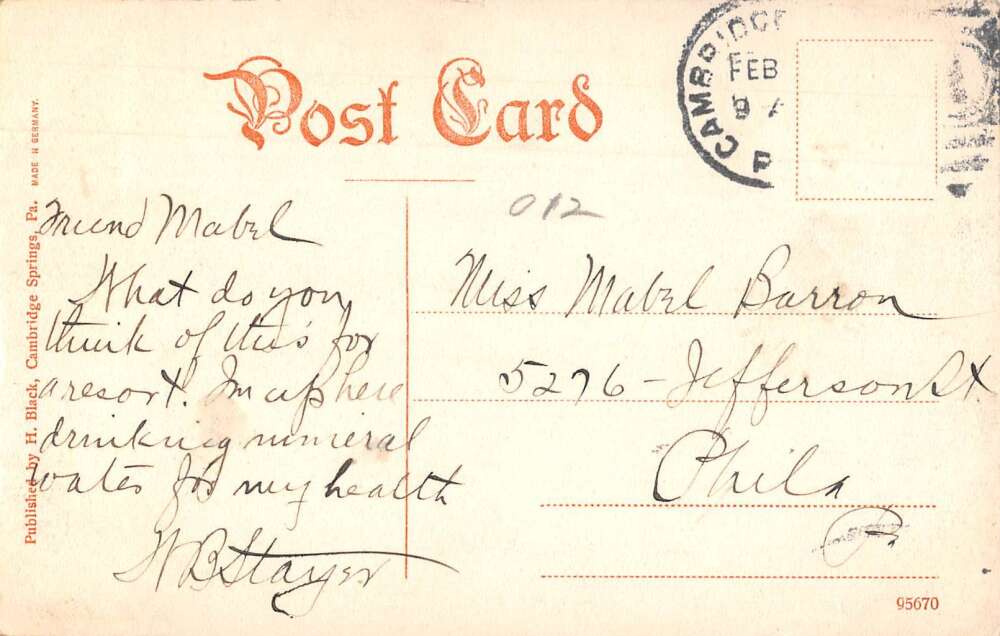 Post Card
CAMBRIDGE
FEB
9 A
P
012
Published by H. Black, Cambridge Springs, Pa. MADE IN GERMANY.
Friend Mabel
What do you
think of this for
a resort. Im up here
drinking mineral
water for my health
W B Stayer
Miss Mabel Barron
5276 - Jefferson St
Phila
Pa
95670